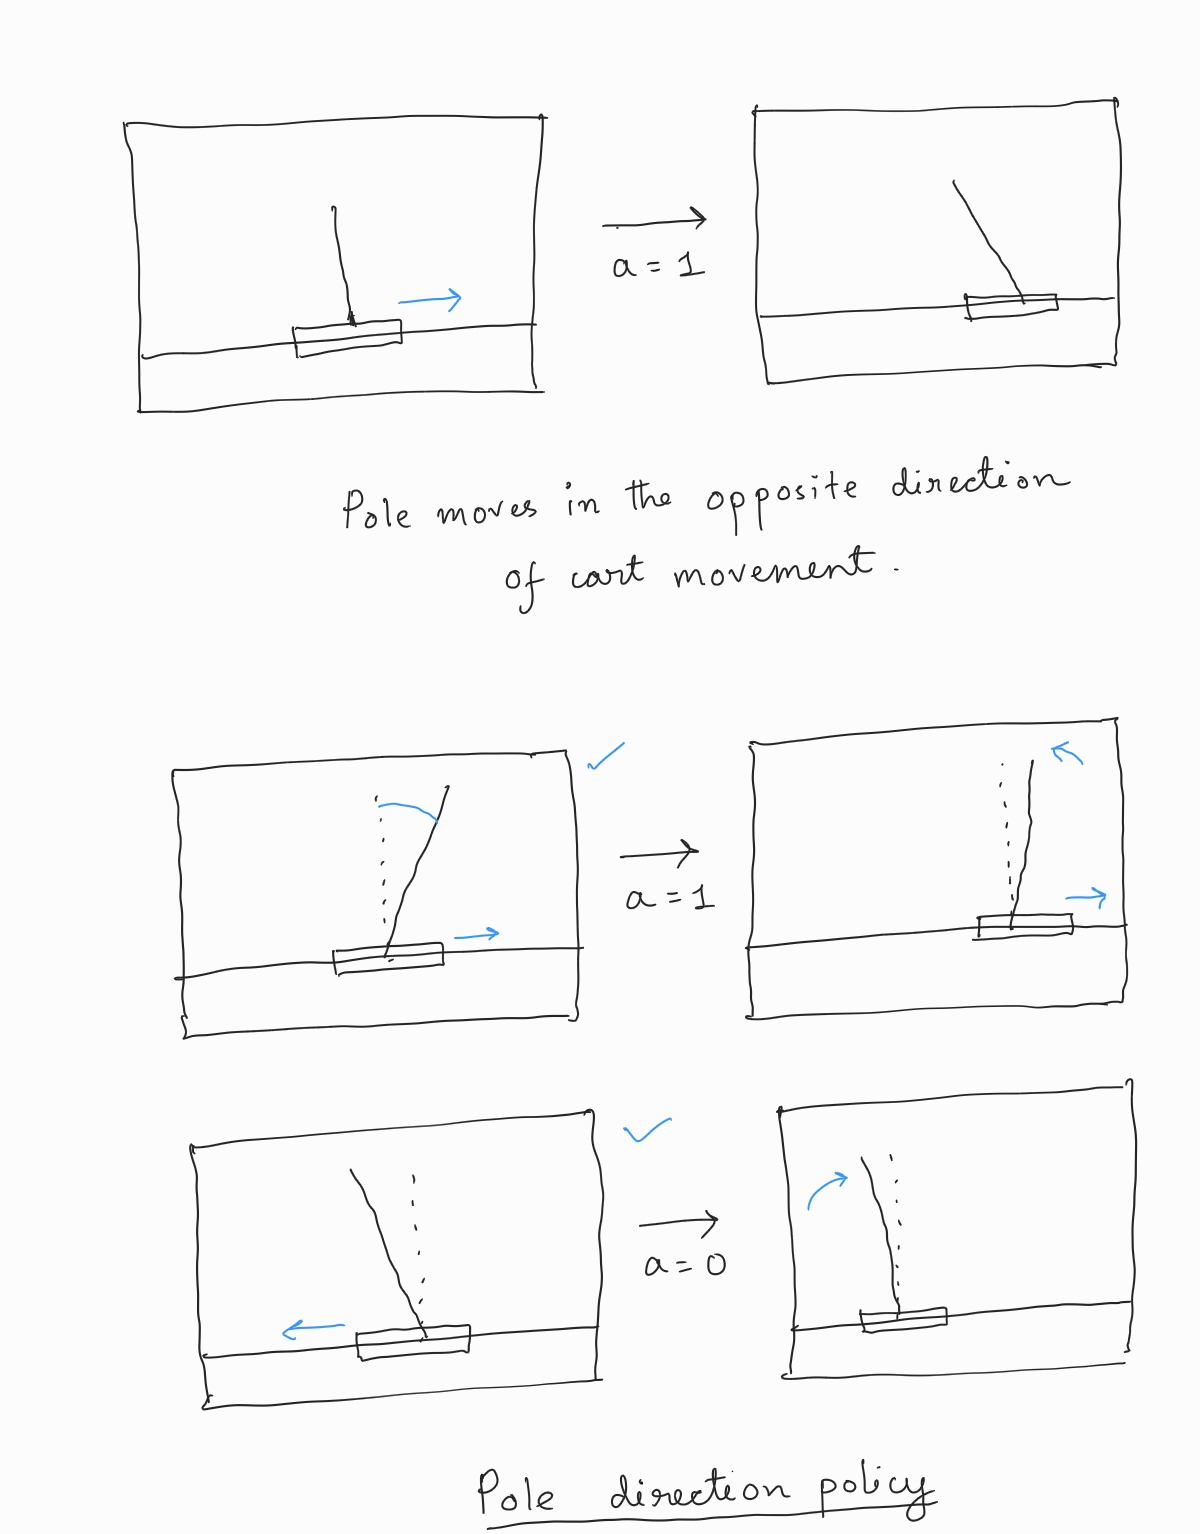 a = 1
Pole moves in the opposite direction
of cart movement.
a = 1
a = 0
Pole direction policy